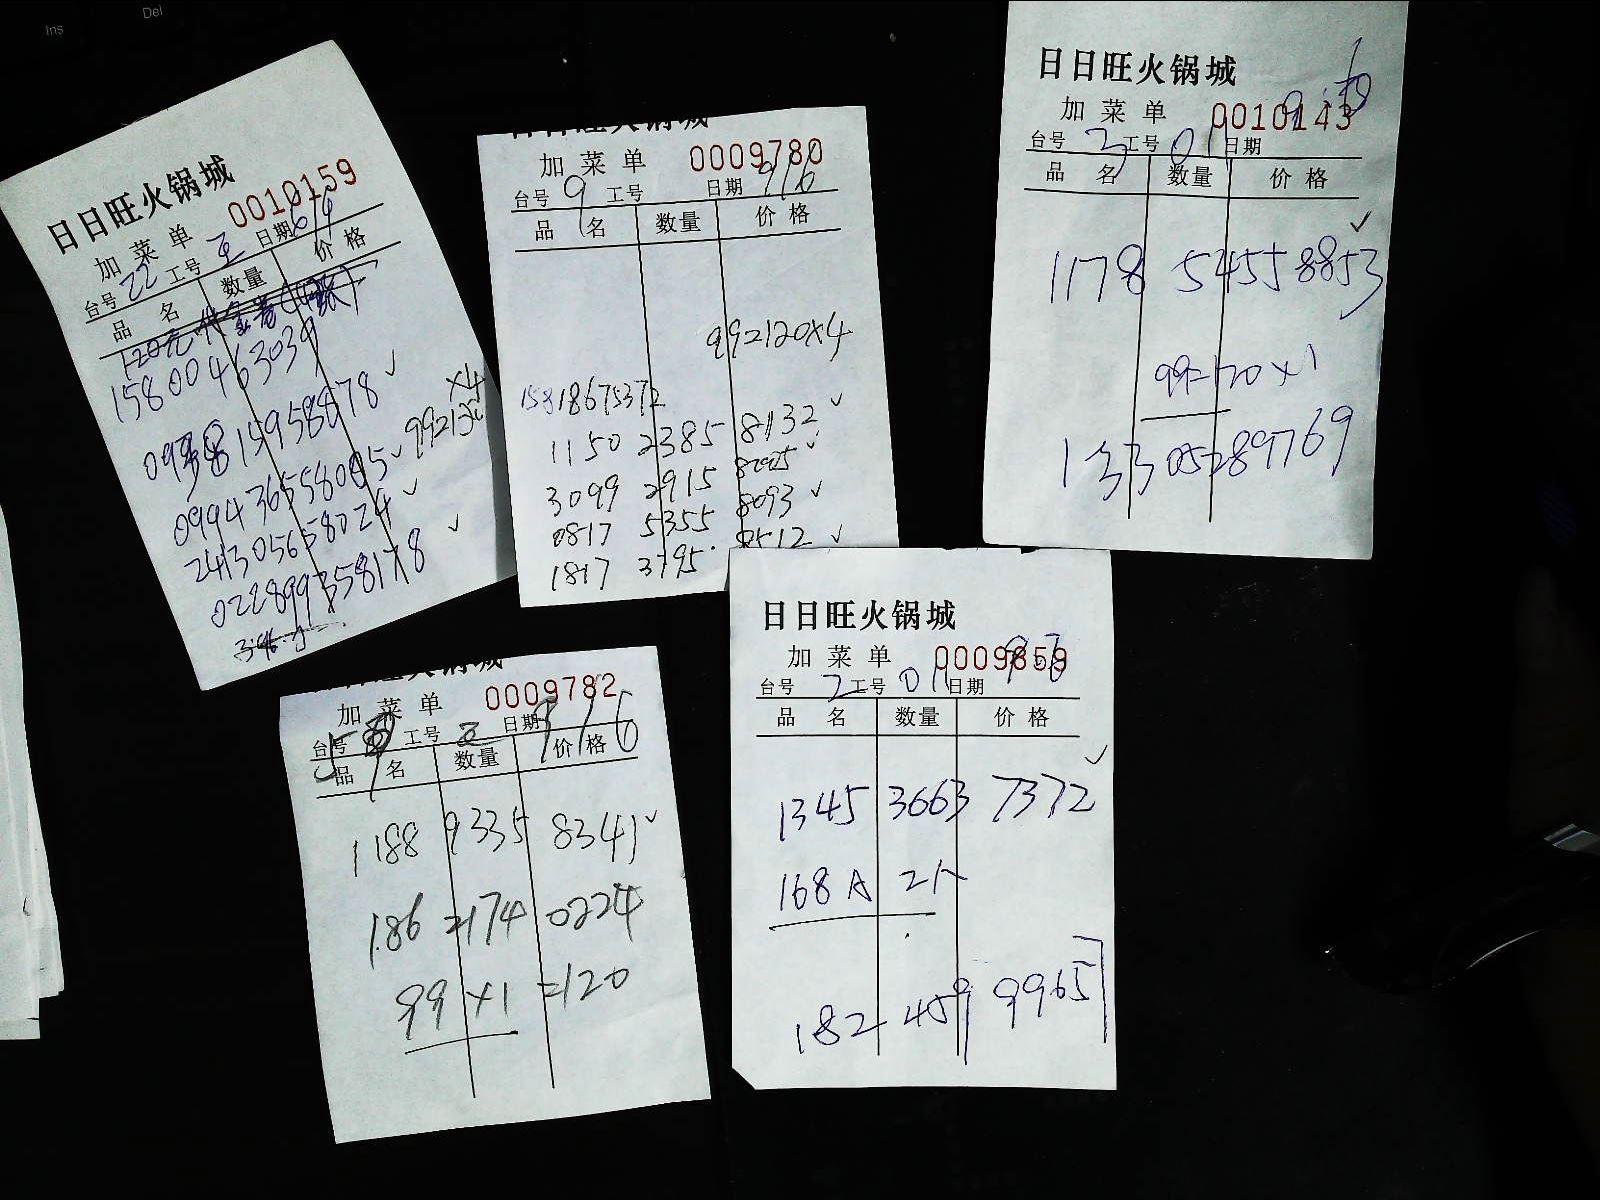 Ins
Del
日日旺火锅城
加菜单 0010159
台号 22 工号 日期
品名 数量 价格
15800463039
815958878 ✓
099436558095 ✓
×4
241305658024 ✓
022899358178 ✓
日日旺火锅城
加菜单 0009780
台号 9 工号 日期 9/6
品名 数量 价格
992120×4
15818675372
1150 2385 8132 ✓
3099 2915 8295 ✓
0817 5355 8093 ✓
1817 3795 ✓
日日旺火锅城
加菜单 0010143
台号 2 工号 01 日期
品名 数量 价格
✓
1178 5455 8853
99=120×1
13305289769
火锅城
加菜单 0009782
台号 工号 日期 9/6
品名 数量 价格
1188 9335 8341 ✓
186 2174 0224
99×1=120
日日旺火锅城
加菜单 0009859
台号 2 工号 01 日期 9.6
品名 数量 价格
✓
1345 3663 7372
168A 2个
182 459 9965